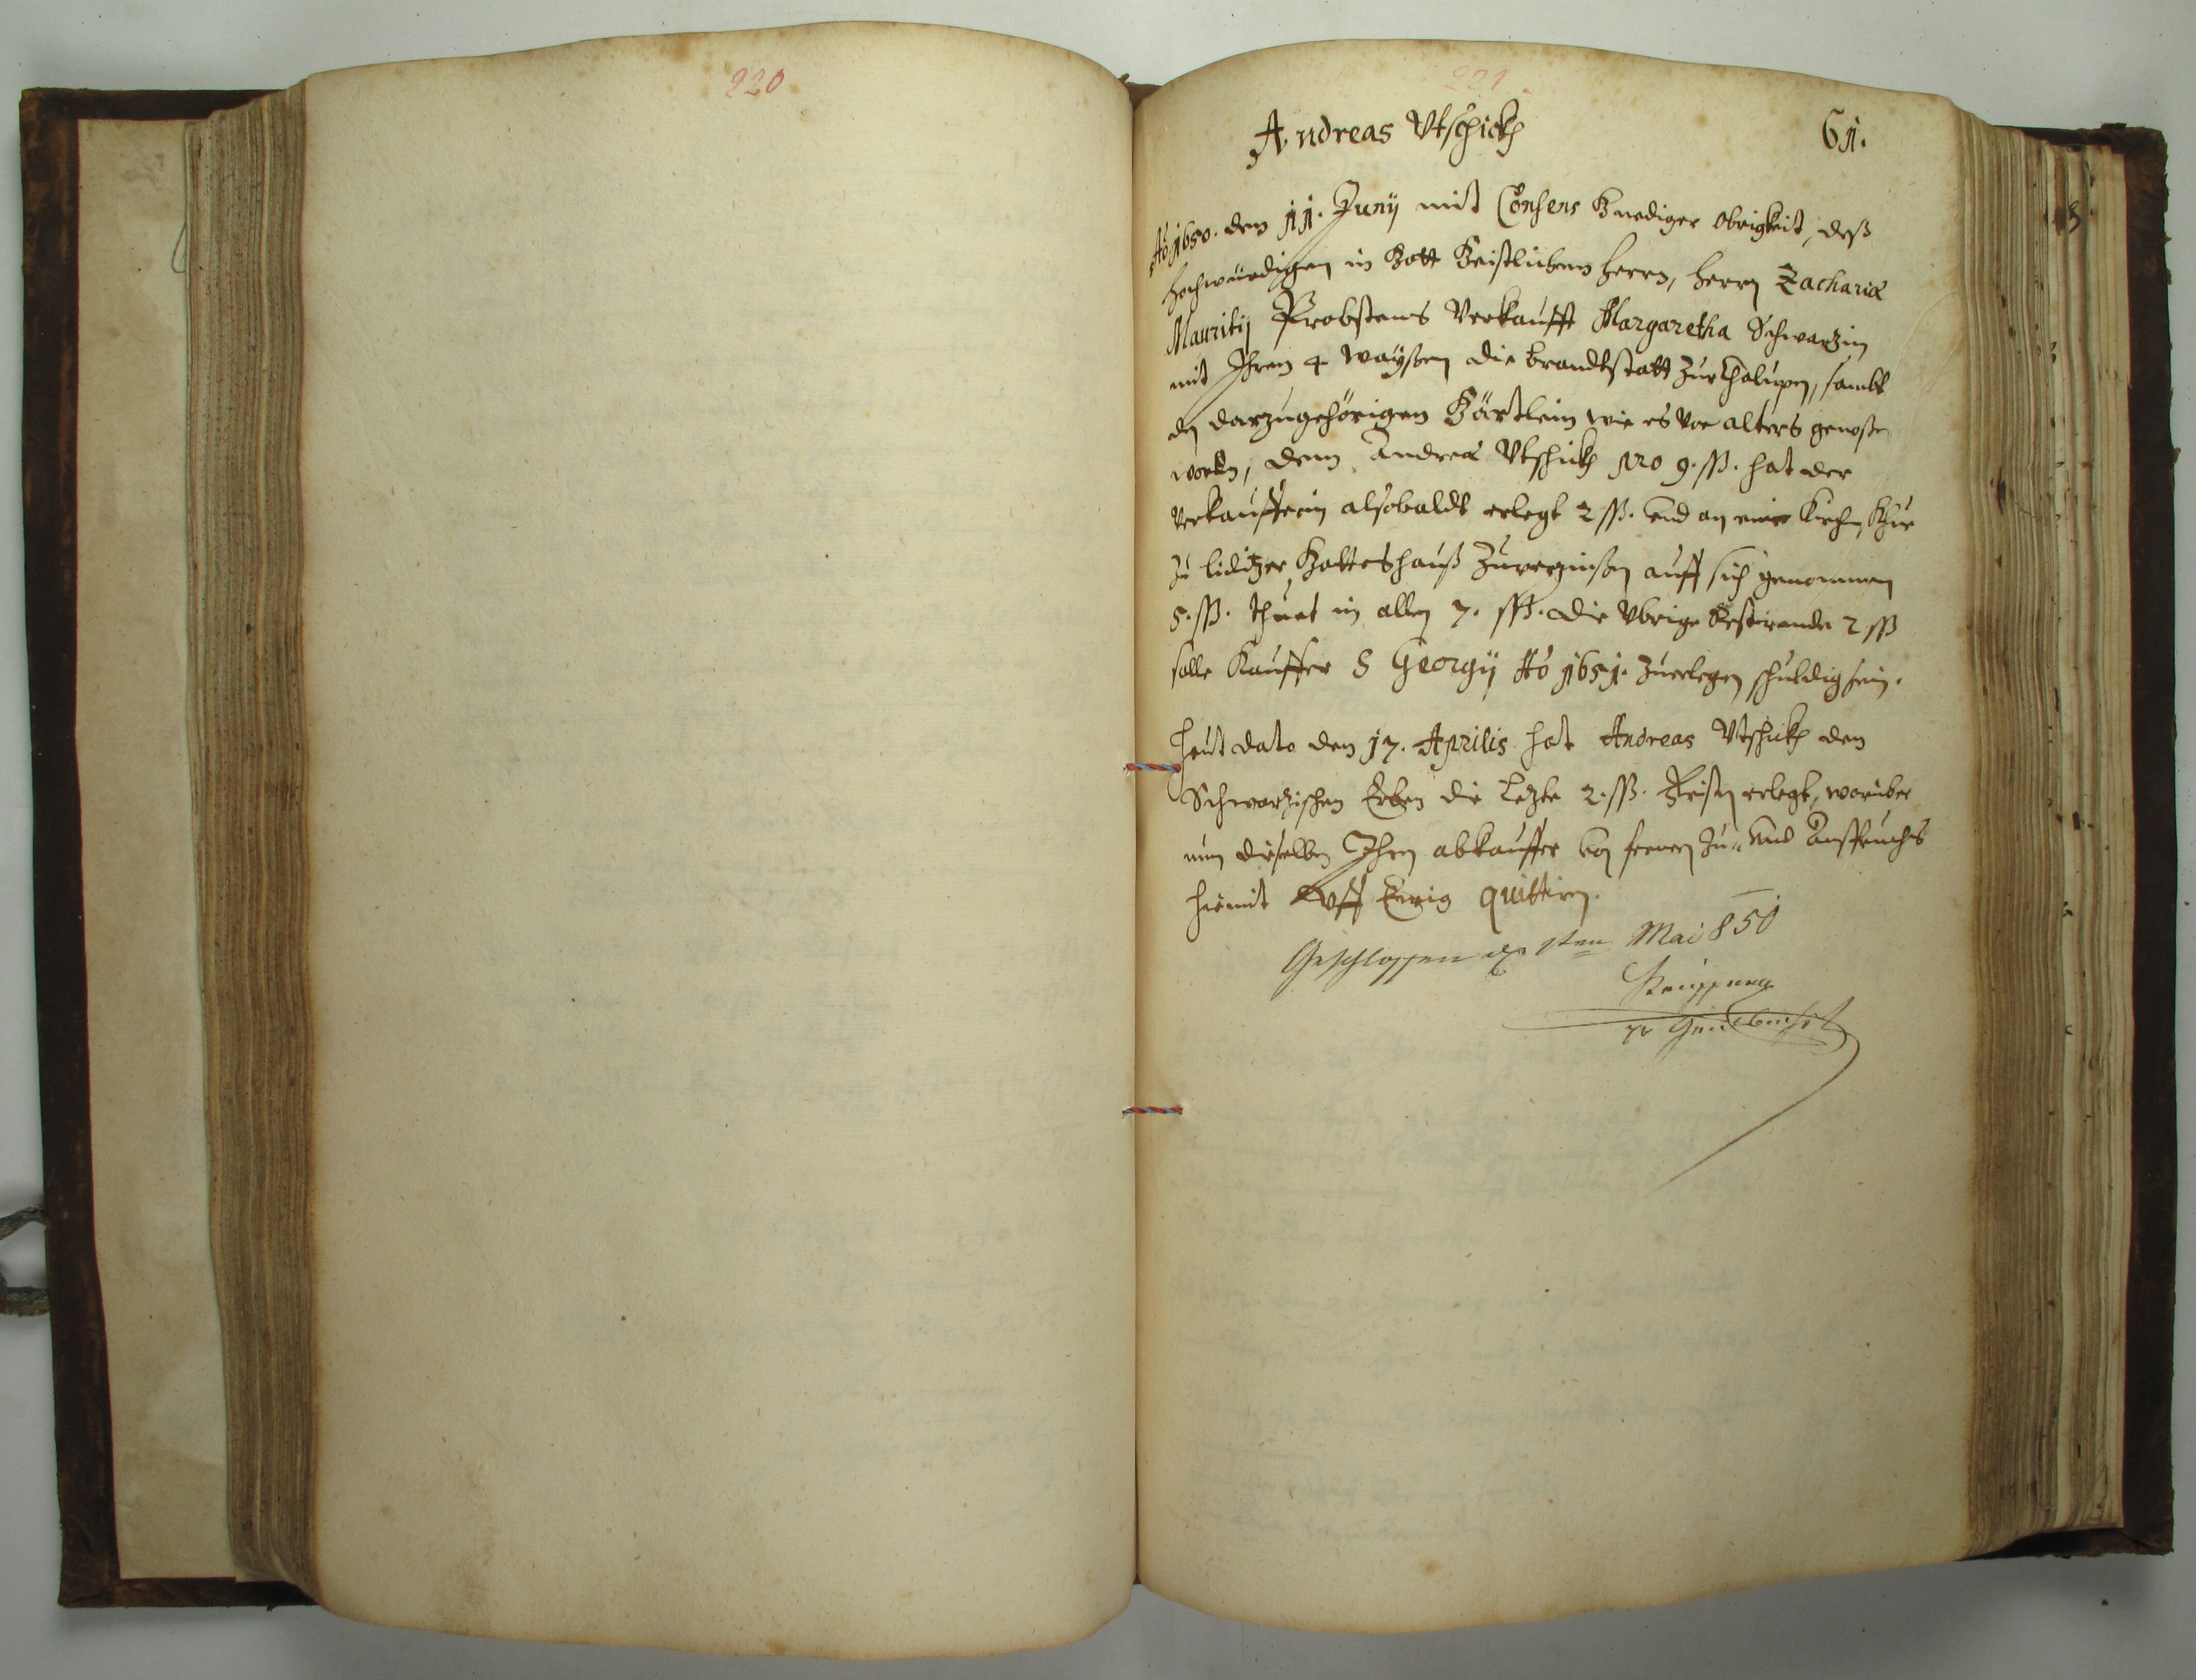 220
221
Andreas Vtschickh
61.
Aõ 1650. den 11. Juny mit Consens Gnediger Obrigkeit, deß
Hochwürdigen in Gott Geistlichen Herrn, Herrn Zachariæ
Mauritij Probstens Verkaufft Margaretha Schwarzin
mit Ihren 4 Waÿßen die brandtstatt Zur Chalupen, sambt
dem darzugehörigen Gärtlein wie es vor alters genoßen
worden, dem Andreæ Vtschickh pro 9. ßß. hat der
Verkaufferin alsobaldt erlegt 2 ßß. und an einer Kirchen Khue
zu Liditzer Gotteshauß Zuverzinßen auff sich genommen
5. ßß. thuet in allen 7. ßß. die Vbrige Restirende 2 ßß
solle Kauffer S Georgij Aõ 1651. Zuerlegen schuldig sein.
Heut dato den 17. Aprilis hat Andreas Vtschickh den
Schwarzischen Erben die Lezte 2. ßß. erlegt, worüber
nun dieselben Ihren abkauffer von fernern Zu- und Anspruchs
hiemit Auff Ewig quittiren.
Geschlossen den 1ten Mai 850